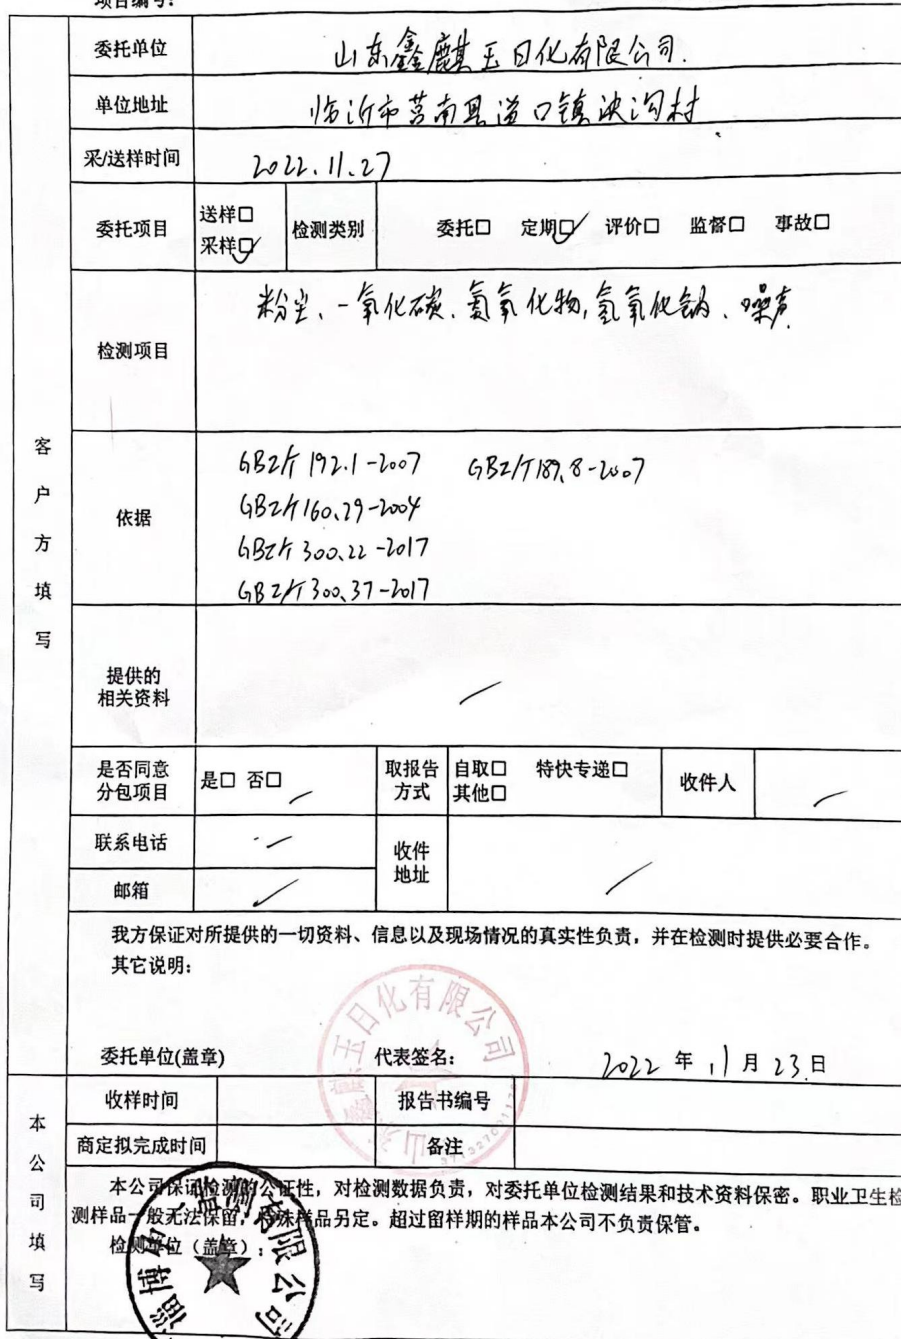 项目编号:
委托单位 山东鑫麒玉日化有限公司.
单位地址 临沂市莒南县道口镇泱沟村
采/送样时间 2022.11.27
委托项目 送样□ 采样☑ 检测类别 委托□ 定期☑ 评价□ 监督□ 事故□
检测项目 粉尘、一氧化碳、氮氧化物,氢氧化钠、噪声
客户方填写
依据
GBZ/T 192.1-2007 GBZ/T189.8-2007
GBZ/T160.29-2004
GBZ/T 300.22-2017
GBZ/T 300.37-2017
提供的
相关资料 /
是否同意
分包项目 是□ 否□ /
取报告
方式 自取□ 特快专递□
其他□
收件人 /
联系电话 /
邮箱 /
收件
地址 /
我方保证对所提供的一切资料、信息以及现场情况的真实性负责，并在检测时提供必要合作。
其它说明:
委托单位(盖章) 代表签名: 2022 年 11 月 23 日
山东鑫麒玉日化有限公司
本公司填写
收样时间 报告书编号
商定拟完成时间 备注
本公司保证检测的公正性，对检测数据负责，对委托单位检测结果和技术资料保密。职业卫生检
测样品一般无法保留，特殊样品另定。超过留样期的样品本公司不负责保管。
检测单位（盖章）:
淄博 检测有限公司